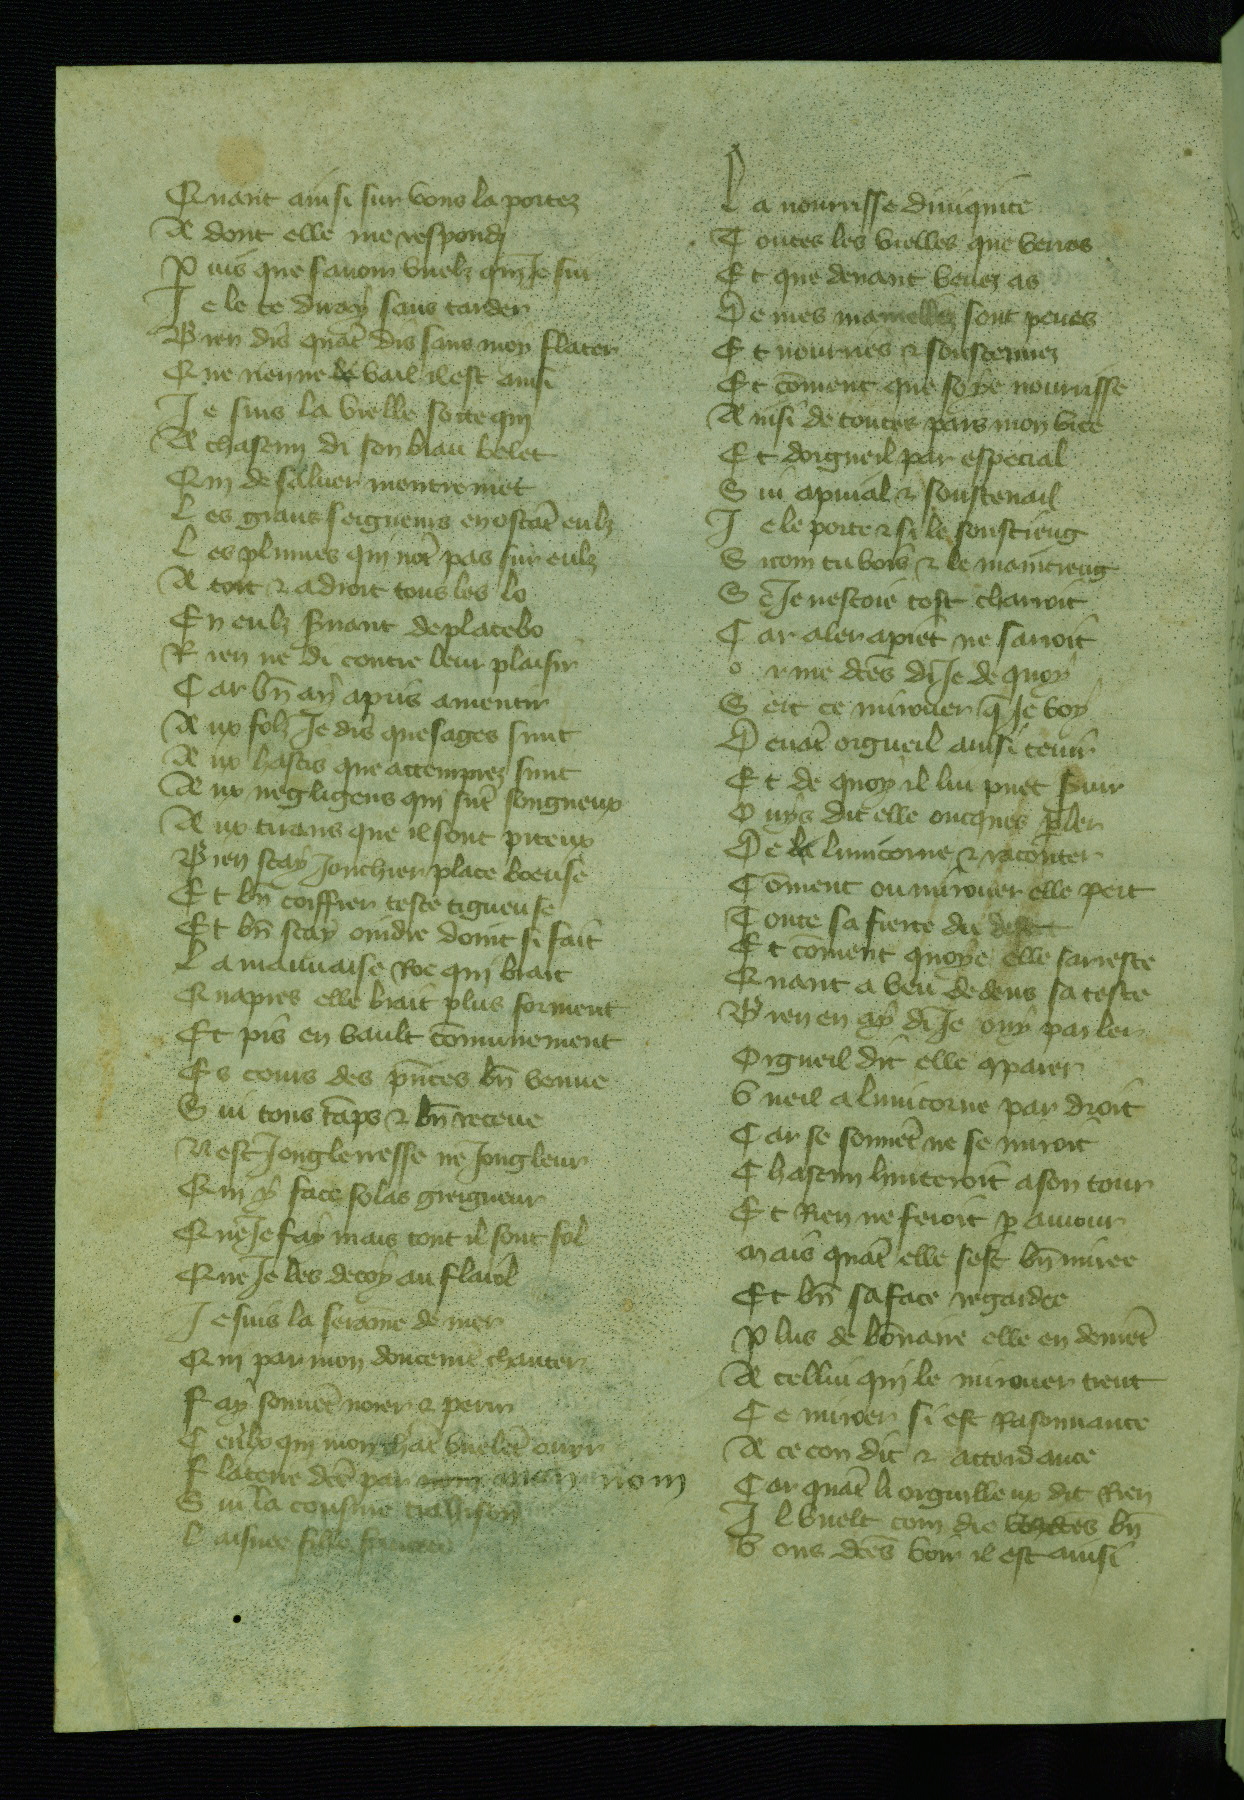 Quant ainsi sur vous la portez
A dont elle me respondi
P uis que savoir vuelz qui Je sui
J e le te diray sans tarder
B ien dis quāt dis sans moy flater
Que rien ne vail il est ainsi
J e suis la vielle sote qui
A chascun di son biau velet
Qui de saluer mentremet
L es grans seigneurs en ostāt eulz
L es plumes qui nōt pas sur eulz
A tort & a droit tous les lo
En eulz sivant de placebo
R ien ne di contre leur plaisir
C ar bn̄ ay apris a mentir
A ux folz Je dis que sages sunt
A ux hastis que attemprez sunt
A ux negligens qui sūt songneux
A ux tirans que il sont piteux
B ien scay Jonchier place boeuse
E t bn̄ coiffier teste tigneuse
E t bn̄ scay oindre doint si fait
L a mauvaise Roe qui brait
Qu apres elle brait plus forment
E t pis en vault cōmunement
E s cours des pn̄ces bn̄ venue
S ui tous tāps & bn̄ receue
N est Jongleresse ne Jongleur
Qui y face solas greigneur
Que Je fay mais tout il sont fol
Que Je les decoy au flaiol
J e suis la seraine de mer
Qui par mon doucemt chanter
F ay souuēt noier & perir
C eulx qui mon chāt vuelēt ouyr
F laterie dc̄te par nom
S ui la cousine traÿson
L aisnee fille
L a nourrisse diniquite
T outes les vielles que verras
E t que devant veuez as
D e mes mamelles sont peues
E t nourries & soustenuez
E t cōment que soye nourrisse
A insi de toutes pars mon vice
E t dorgueil par especial
S ui apuial & soustenail
J e le porte & si le soustieng
S i com tu vois & le maintieng
S e Je nestoie tost charroit
C ar aler a piet ne saroit
o r me dc̄es di Je de quoy
S ert ce mirouer q̄ Je voy
D evāt orgueil ainsi tenir
E t de quoy il lui puet suir
O uys dit elle oncques p̄ler
D e lunicorne & raconter
C ōment ou mirouer elle pert
T oute sa fierte du desert
E t cōment quoye elle sarreste
Quant a veu dedens sa teste
B ien en ay di Je ouy parler
Orgueil dit elle ꝯparer
V ueil a lunicorne par droit
C ar se souuēt ne se miroit
C hascun hurteroit a son tour
E t Rien ne feroit p̄ amour
mais quāt elle sest bn̄ miree
E t bn̄ sa face regardee
P lus de bōnaire elle en deviēt
A cellui qui le mirouer tient
C e mirer si est Rasonnance
A ce con dit & accordance
C ar quāt li orguilleux dit Rien
I l vuelt com die bn̄
V ous dc̄es voir il est ainsi